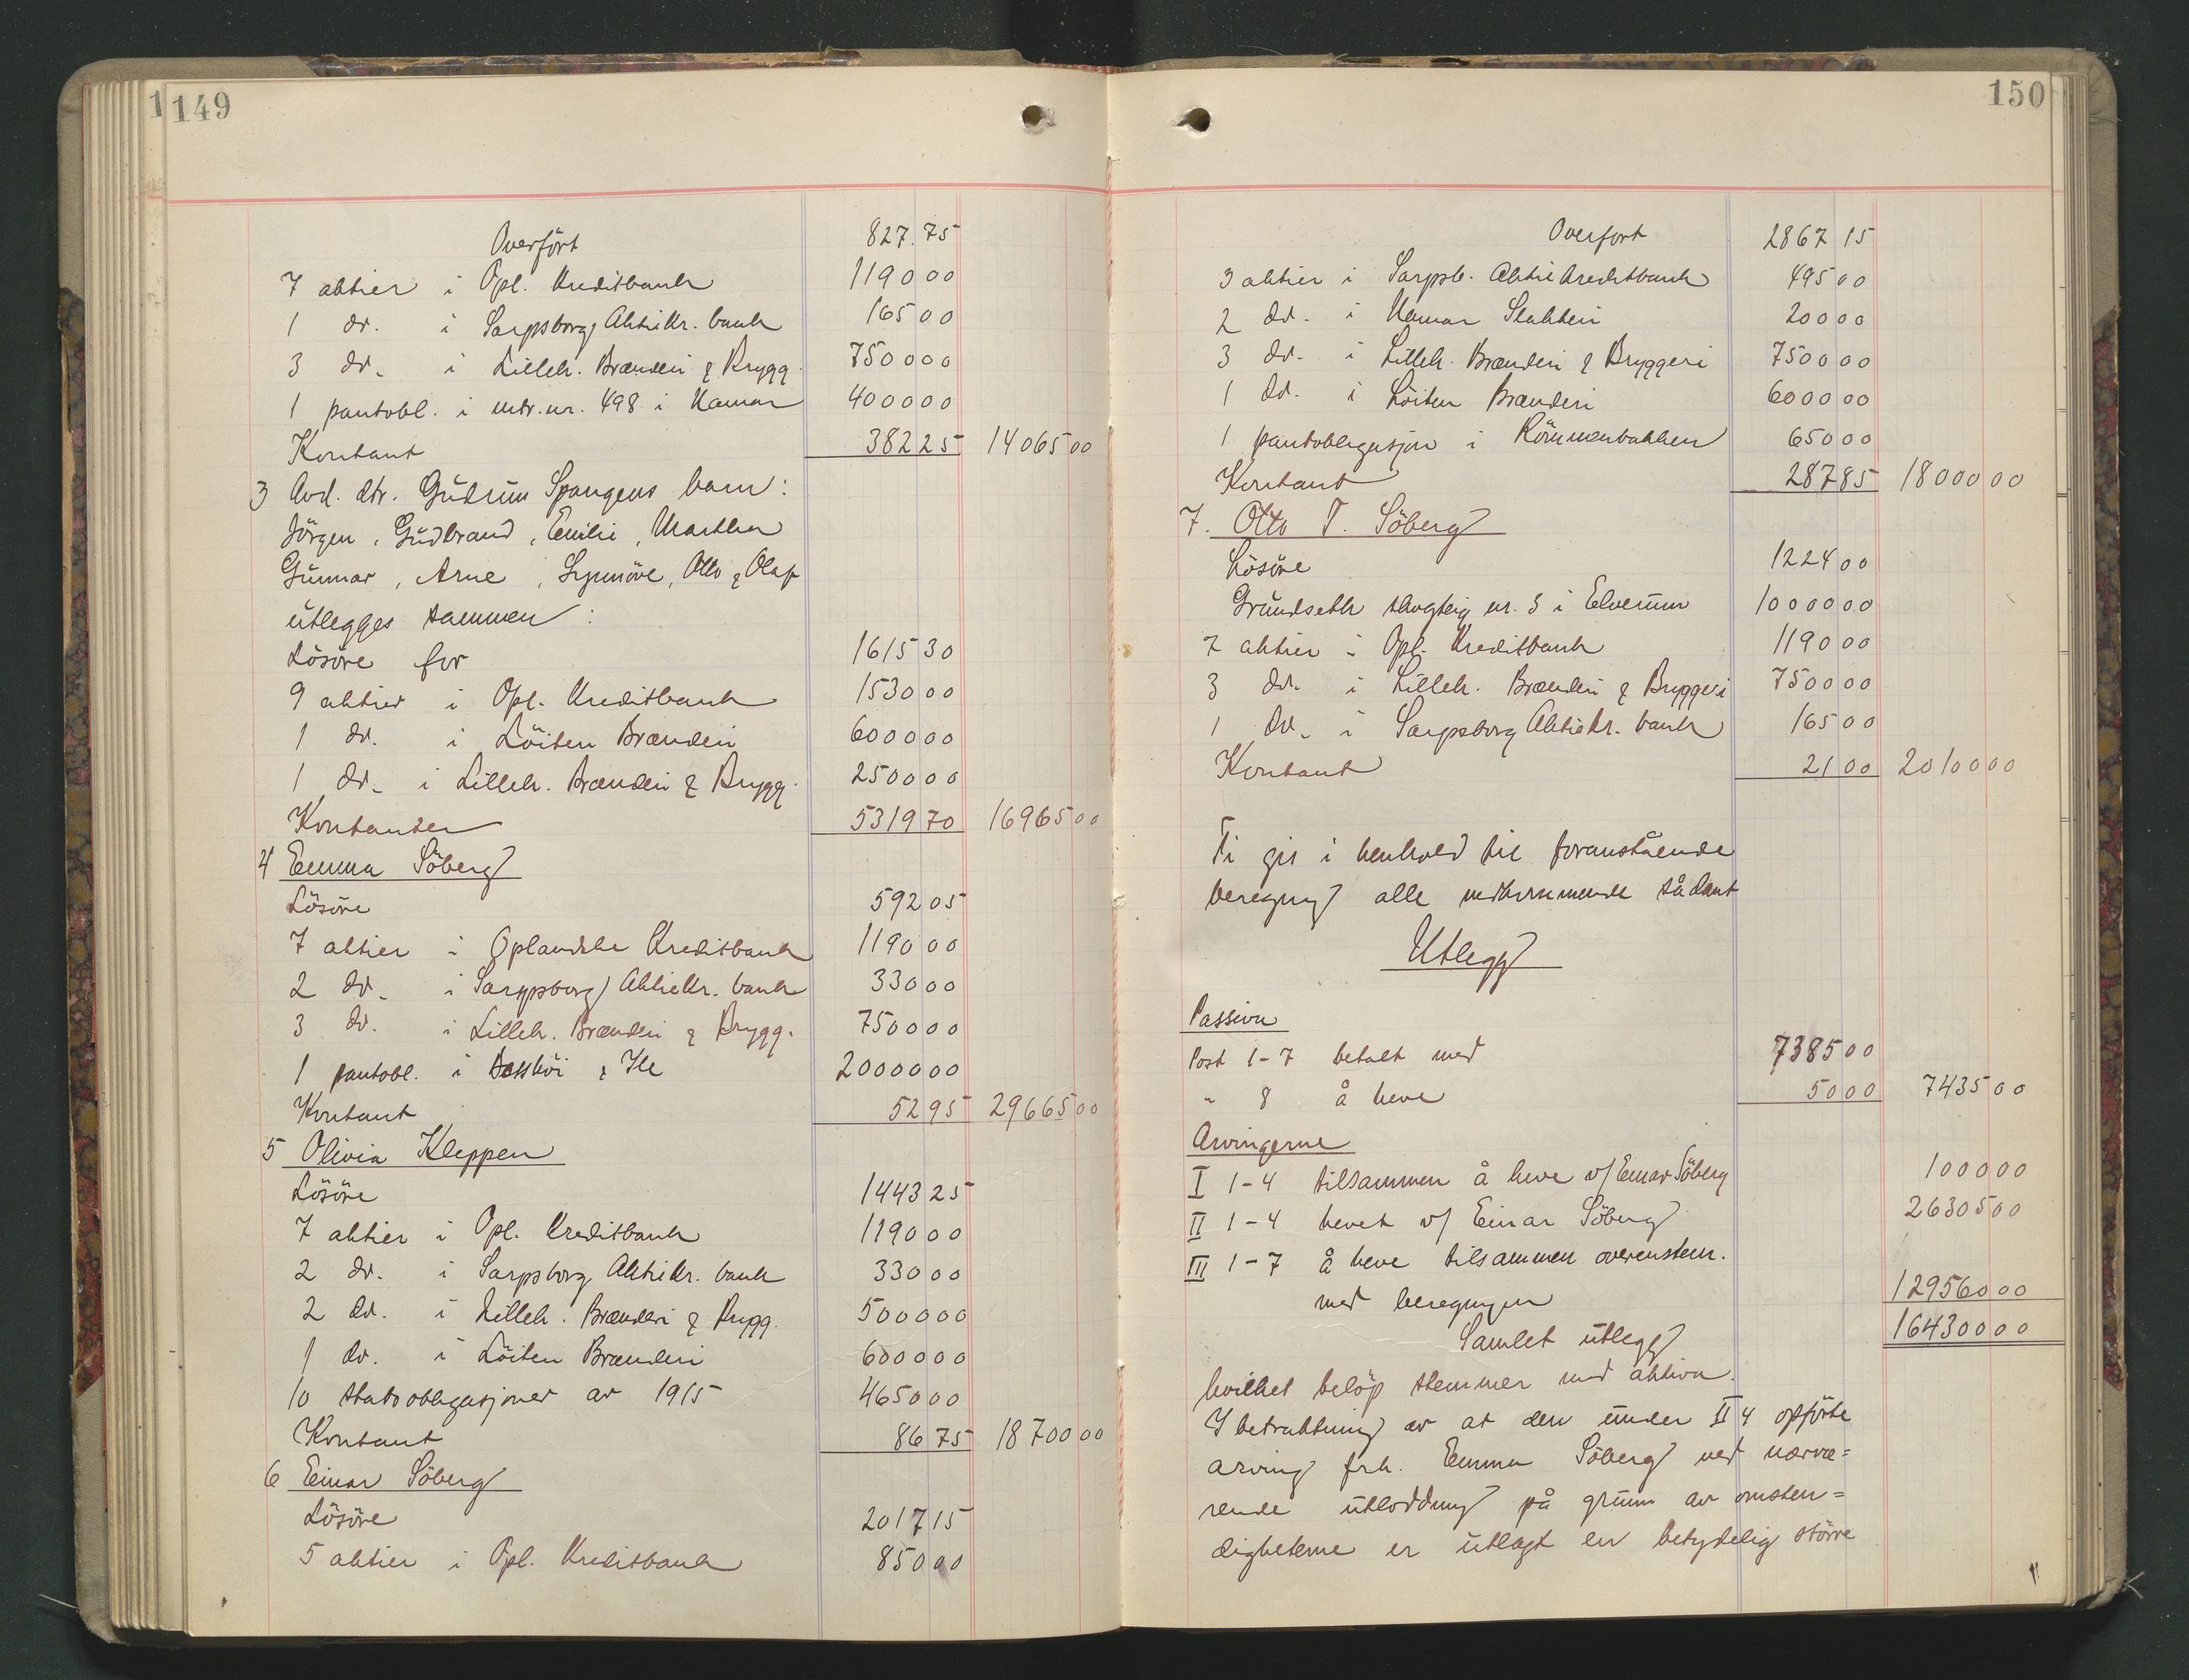 149
Overført 827.75
7 aktier i Opl. Kreditbank 1190 00
1 do. i Sarpsborg Aktiekr. bank 165 00
3 do. i Lilleh. Brænderi & Brygg. 7500 00
1 pantobl. i mtr.nr. 498 i Hamar 4000 00
Kontant 382 25 14065 00
3 Avd. dtr. Gudrun Spangens barn:
Jörgen, Gudbrand, Emilie, Marthea
Gunnar, Arne, Synnöve, Otto & Olaf
utlegges sammen:
Lösöre for 1615 30
9 aktier i Opl. Kreditbank 1530 00
1 do. i Löiten Brænderi 6000 00
1 do. i Lilleh. Brænderi & Brygg. 2500 00
Kontanter 5319 70 16965 00
4 Emma Söberg
Lösöre 592 05
7 aktier i Oplandske Kreditbank 1190 00
2 do. i Sarpsborg Aktiekr. bank 330 00
3 do. i Lilleh. Brænderi & Brygg. 7500 00
1 pantobl. i & Ile 20000 00
Kontant 52 95 29665 00
5 Olivia Kleppen
Lösöre 1443 25
7 aktier i Opl. Kreditbank 1190 00
2 do. i Sarpsborg Aktiekr. bank 330 00
2 do. i Lilleh. Brænderi & Brygg. 5000 00
1 do. i Löiten Brænderi 6000 00
10 statsobligasjoner av 1915 4650 00
Kontant 86 75 18700 00
6 Einar Söberg
Lösöre 2017 15
5 aktier i Opl. Kreditbank 850 00
150
Overfort 2867 15
3 aktier i Sarpsb. Aktiekreditbank 495 00
2 do. i Hamar Slakteri 200 00
3 do. i Lilleh. Brænderi & Bryggeri 7500 00
1 do. i Löiten Brænderi 6000 00
1 pantobligasjon i 650 00
Kontant 287 85 18000 00
7. Otto T. Söberg
Lösöre 1224 00
Grundseth skogteig nr. 3 i Elverum 10000.00
7 aktier i Opl. Kreditbank 1190 00
3 do. i Lilleh. Brænderi & Bryggeri 7500 00
1 do. i Sarpsborg Aktiekr. bank 165 00
Kontant 21 00 20100 00
Ti gis i henhold til foranstående
beregning alle vedkommende sådant
Utlegg
Passiva
Post 1-7 betalt med 7385 00
" 8 å heve 50 00 7435 00
Arvingerne
I 1-4 tilsammen å heve v/ Einar Söberg 1000 00
II 1-4 hevet v/ Einar Söberg 26305 00
III 1-7 å heve tilsammen overenstem.
med beregningen 129560 00
Samlet utlegg 164300 00
hvilket belöp stemmer med aktiva.
I betraktning av at den under II 4 opförte
arving frk. Emma Söberg ved nærvæ=
rende utlodding på grunn av omsten=
dighetene er utlagt en betydelig större